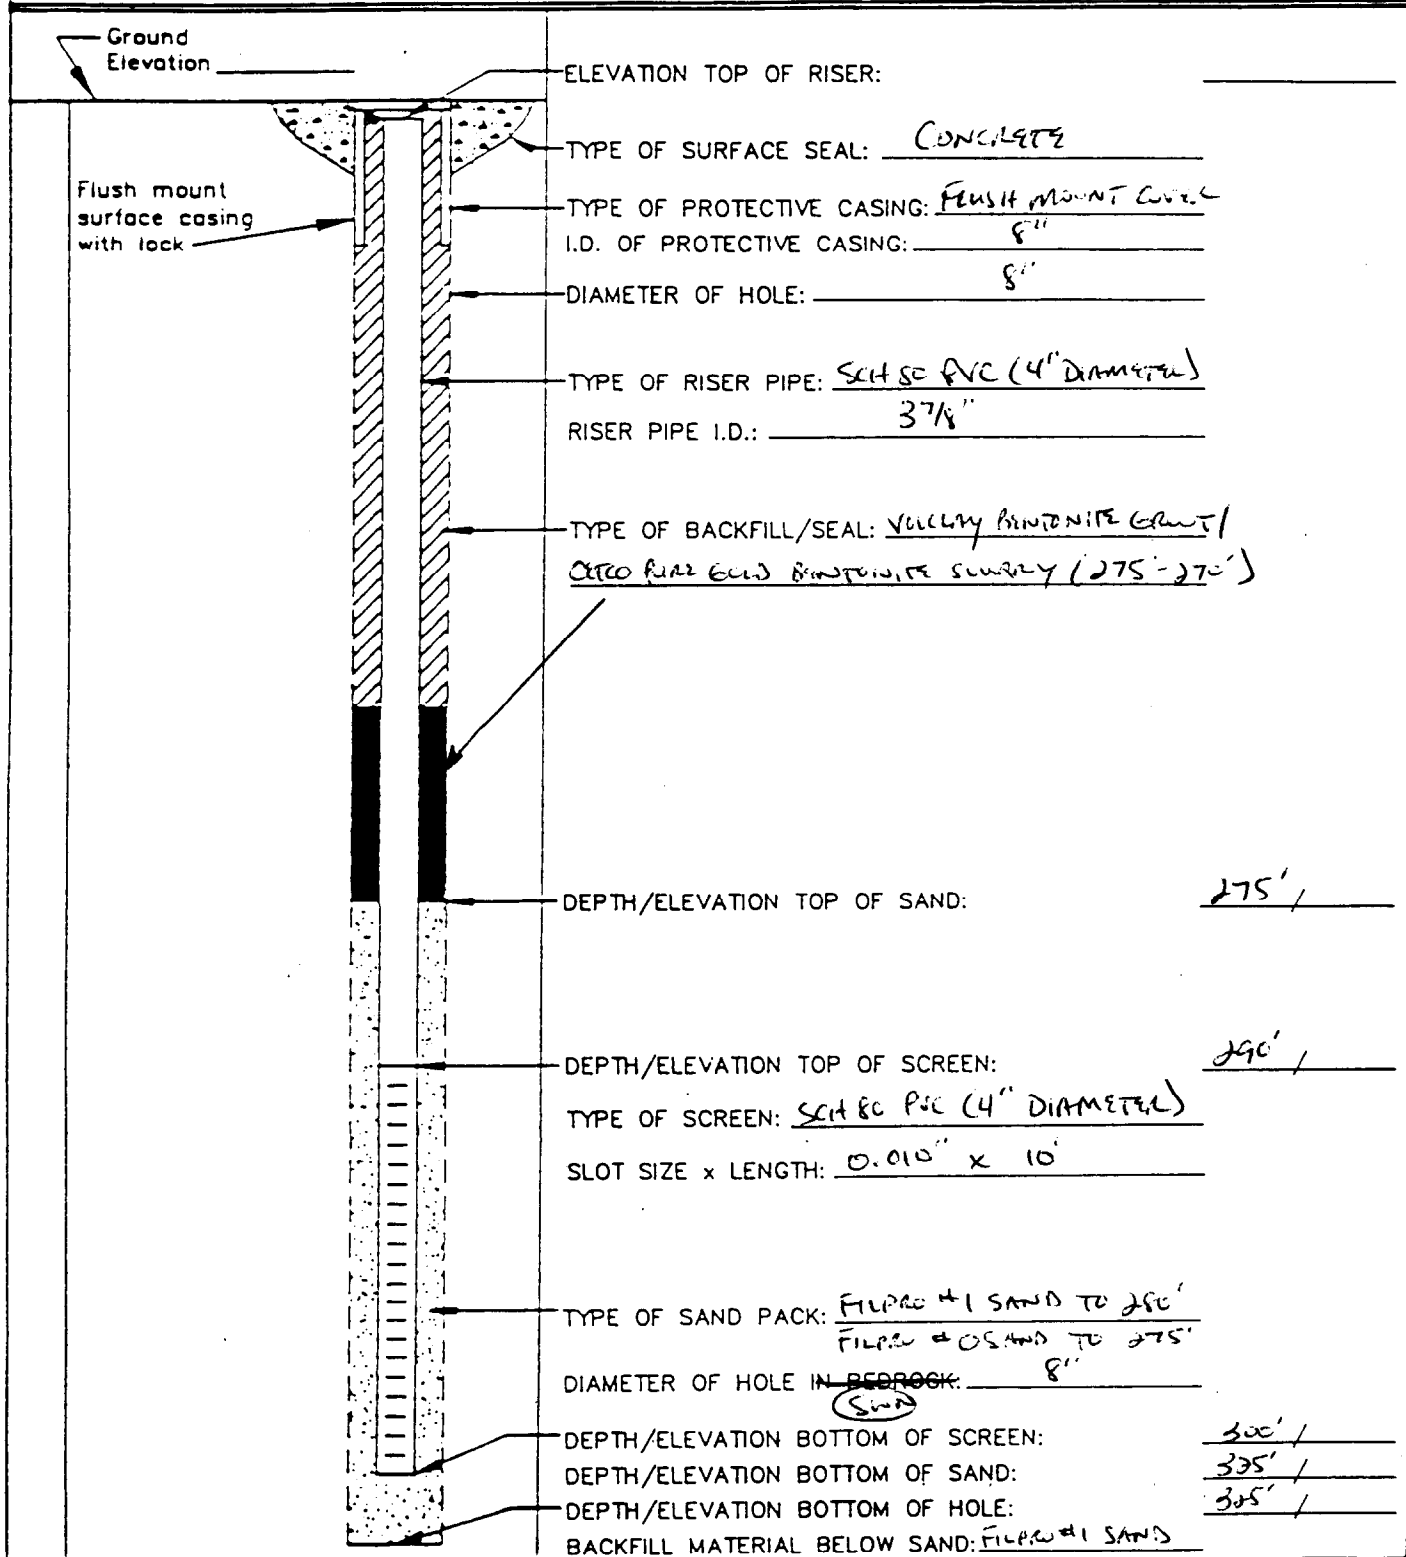 Ground
Elevation
ELEVATION TOP OF RISER:
TYPE OF SURFACE SEAL: CONCRETE
Flush mount
surface casing
with lock
TYPE OF PROTECTIVE CASING: FLUSH MOUNT COVER
I.D. OF PROTECTIVE CASING: 8"
DIAMETER OF HOLE: 8"
TYPE OF RISER PIPE: SCH 80 PVC (4" DIAMETER)
RISER PIPE I.D.: 3 7/8"
TYPE OF BACKFILL/SEAL: VOLCLAY BENTONITE GROUT/
CETCO PURE GOLD BENTONITE SLURRY (275'-270')
DEPTH/ELEVATION TOP OF SAND: 275' /
DEPTH/ELEVATION TOP OF SCREEN: 290' /
TYPE OF SCREEN: SCH 80 PVC (4" DIAMETER)
SLOT SIZE x LENGTH: 0.010" x 10'
TYPE OF SAND PACK: FILPRO #1 SAND TO 280'
FILPRO #0 SAND TO 275'
DIAMETER OF HOLE IN BEDROCK: 8"
DEPTH/ELEVATION BOTTOM OF SCREEN: 300' /
DEPTH/ELEVATION BOTTOM OF SAND: /
DEPTH/ELEVATION BOTTOM OF HOLE: /
BACKFILL MATERIAL BELOW SAND: FILPRO #1 SAND